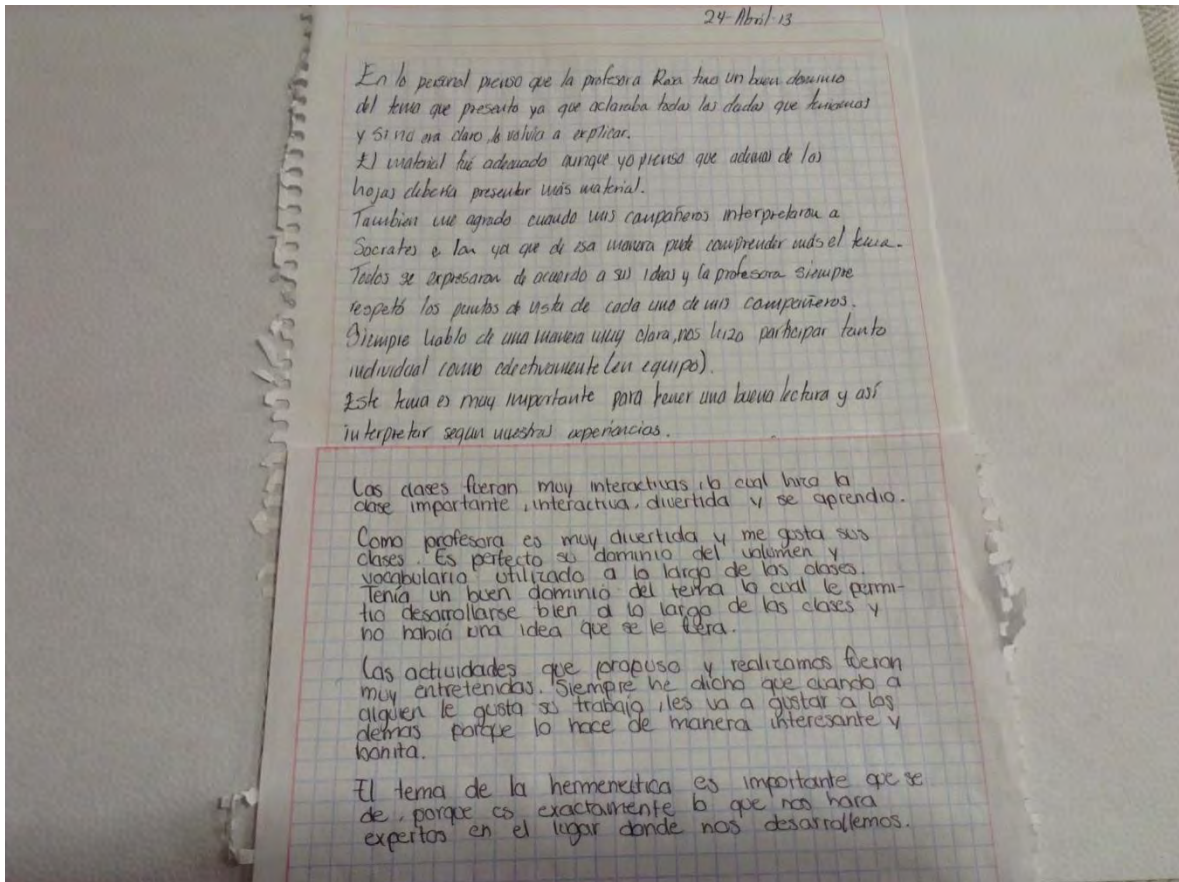 24-Abril-13
En lo personal pienso que la profesora Rosa tuvo un buen dominio
del tema que presento ya que aclaraba todas las dudas que teniamos
y si no era claro, lo volvia a explicar.
El material fué adecuado aunque yo pienso que ademas de las
hojas debería presentar más material.
Tambien me agrado cuando mis compañeros interpretaron a
Socrates e Ion ya que de esa manera pude comprender más el tema.
Todos se expresaron de acuerdo a sus ideas y la profesora siempre
respetó los puntos de vista de cada uno de mis compañeros.
Siempre hablo de una manera muy clara, nos hizo participar tanto
individual como colectivamente (en equipo).
Este tema es muy importante para tener una buena lectura y así
interpretar segun nuestras experiencias.
Las clases fueron muy interactivas, lo cual hizo la
clase importante, interactiva, divertida y se aprendio.
Como profesora es muy divertida y me gusta sus
clases. Es perfecto su dominio del volumen y
vocabulario utilizado a lo largo de las clases.
Tenía un buen dominio del tema lo cual le permi-
tio desarrollarse bien a lo largo de las clases y
no había una idea que se le fuera.
Las actividades que propuso y realizamos fueron
muy entretenidas. Siempre he dicho que cuando a
alguien le gusta su trabajo, les va a gustar a los
demas porque lo hace de manera interesante y
bonita.
El tema de la hermeneutica es importante que se
de, porque es exactamente lo que nos hara
expertos en el lugar donde nos desarrollemos.